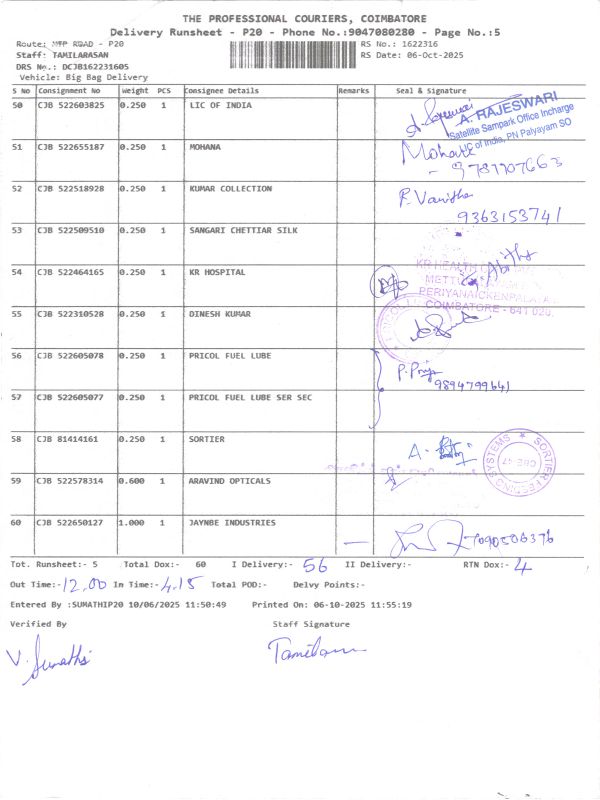 THE PROFESSIONAL COURIERS, COIMBATORE
Delivery Runsheet - P20 - Phone No.:9047080280 - Page No.:5
Route: MTP ROAD - P20 RS No.: 1622316
Staff: TAMILARASAN RS Date: 06-Oct-2025
DRS No.: DCJB162231605
Vehicle: Big Bag Delivery
S No Consignment No Weight PCS Consignee Details Remarks Seal & Signature
50 CJB 522603825 0.250 1 LIC OF INDIA
A. RAJESWARI
Satellite Sampark Office Incharge
LIC of India, PN Palyayam SO
51 CJB 522655187 0.250 1 MOHANA Mohana
52 CJB 522518928 0.250 1 KUMAR COLLECTION
9363153741
53 CJB 522509510 0.250 1 SANGARI CHETTIAR SILK
54 CJB 522464165 0.250 1 KR HOSPITAL
KR HEALTH
COIMBATORE - 641 020.
55 CJB 522310528 0.250 1 DINESH KUMAR
56 CJB 522605078 0.250 1 PRICOL FUEL LUBE P. Priya
9894799641
57 CJB 522605077 0.250 1 PRICOL FUEL LUBE SER SEC
58 CJB 81414161 0.250 1 SORTIER
SORTIER FEEDING SYSTEMS
CBE-47
59 CJB 522578314 0.600 1 ARAVIND OPTICALS
60 CJB 522650127 1.000 1 JAYNBE INDUSTRIES
Tot. Runsheet:- 5 Total Dox:- 60 I Delivery:- 56 II Delivery:- RTN Dox:- 4
Out Time:- 12.00 In Time:- 4.15 Total POD:- Delvy Points:-
Entered By :SUMATHIP20 10/06/2025 11:50:49 Printed On: 06-10-2025 11:55:19
Verified By Staff Signature
V. Sumathi